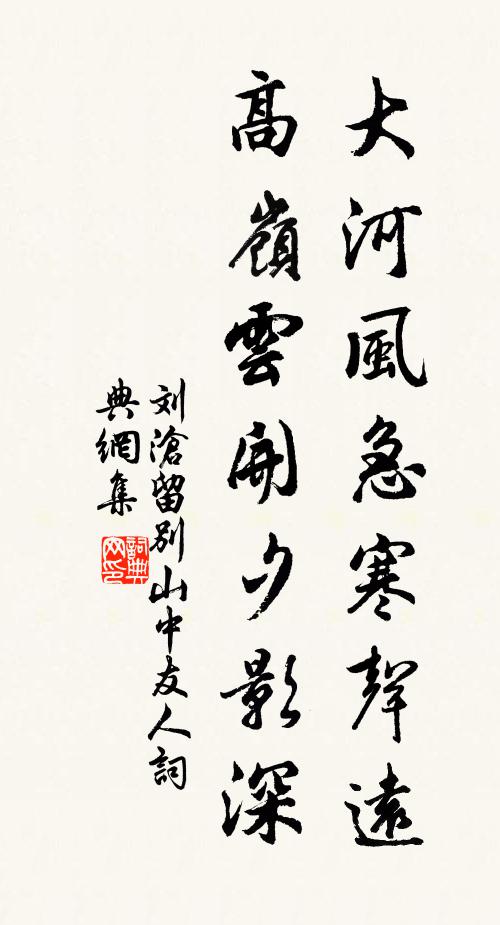 大河風急寒聲遠
高嶺雲開夕影深
刘滄留別山中友人詞
典網集
詞典
网印